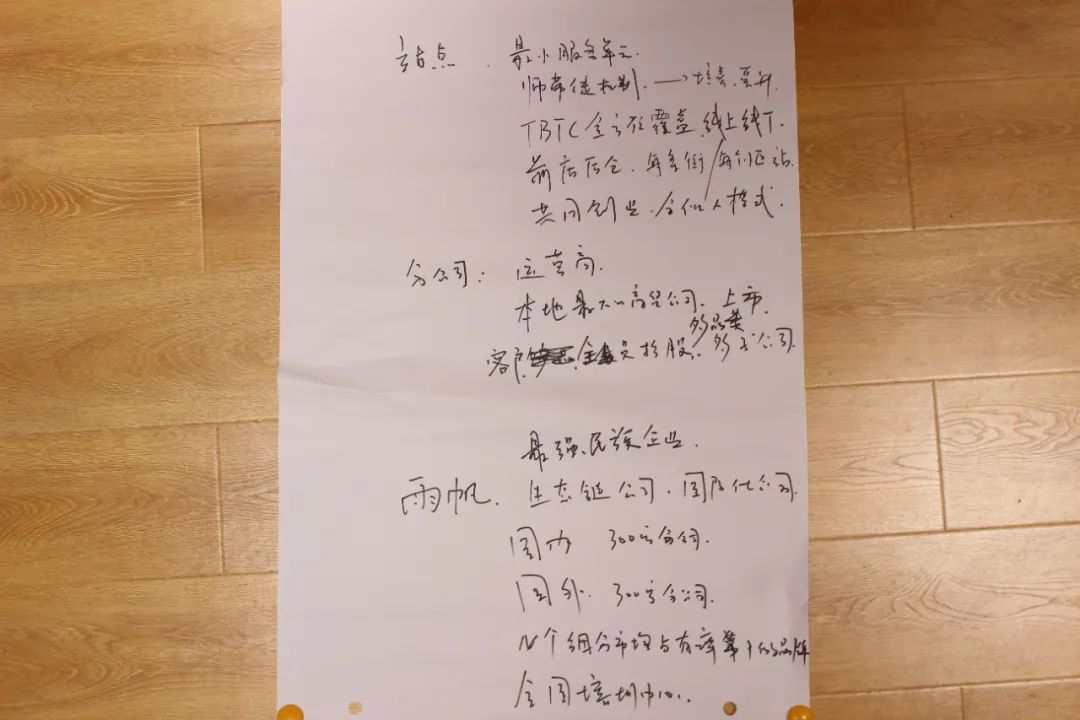 站点. 最小服务单元.
师带徒机制. → 培养.晋升
TBTC全方位覆盖.线上线下.
前店后仓.每条街/每个区站.
共同创业.合伙人模式.
分公司: 运营商.
本地最大的商贸公司.上市.
多品类
客户 全员持股. 多子公司.
最强民族企业.
雨帆. 生态链公司.国际化公司.
国内 300家分公司.
国外. 300家分公司.
N个细分市场占有率第1的品牌
全国培训中心.